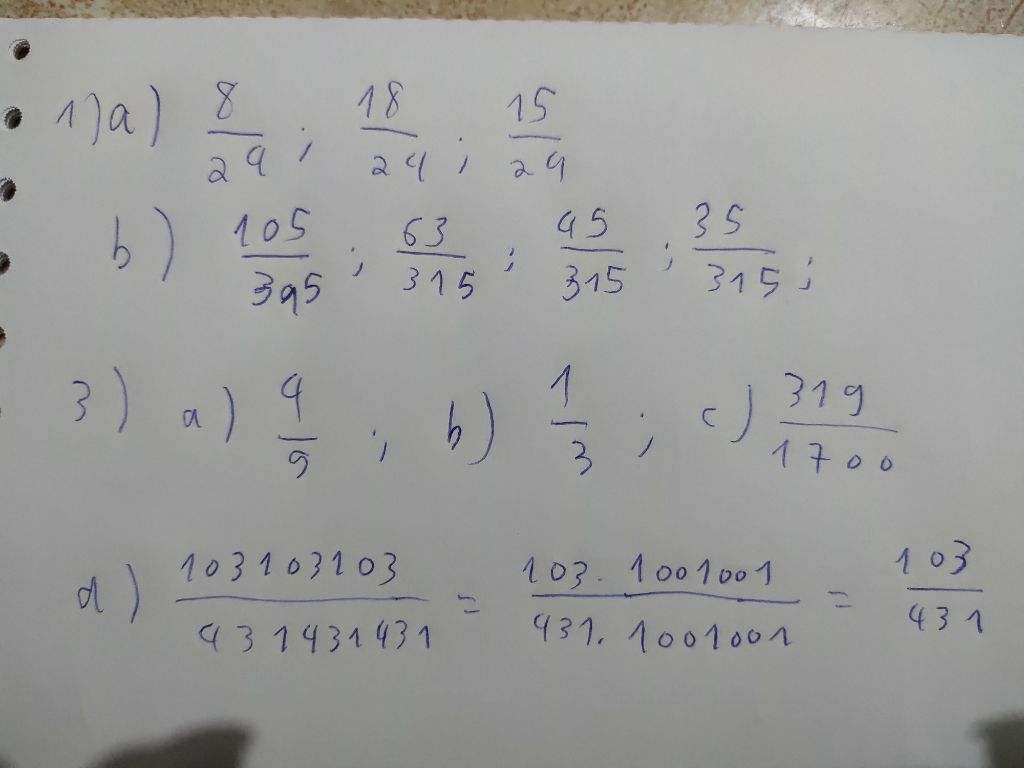 1) a) 8/24 ; 18/24 ; 15/24
b) 105/345 ; 63/315 ; 45/315 ; 35/315 ;
3) a) 4/9 ; b) 1/3 ; c) 319/1700
d) 103103103/431431431 = 103.1001001/431.1001001 = 103/431